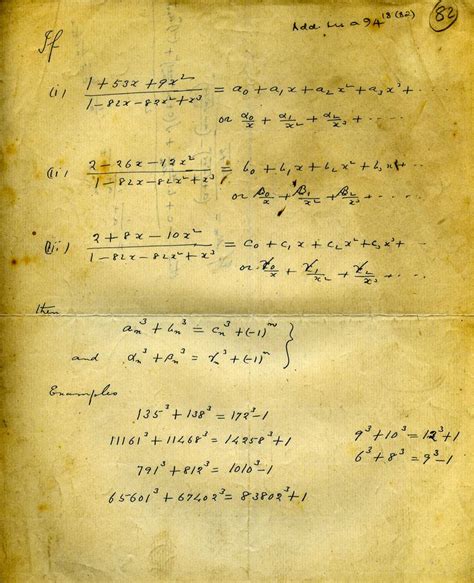 Add Ms a 94 18 (82)
82
If
(i) (1+53x+9x²)/(1-82x-82x²+x³) = a₀+a₁x+a₂x²+a₃x³+...
or α₀/x + α₁/x² + α₂/x³ + ...
(ii) (2-26x-12x²)/(1-82x-82x²+x³) = b₀+b₁x+b₂x²+b₃x³+...
or β₀/x + β₁/x² + β₂/x³ + ...
(iii) (2+8x-10x²)/(1-82x-82x²+x³) = c₀+c₁x+c₂x²+c₃x³+...
or γ₀/x + γ₁/x² + γ₂/x³ + ...
then
aₙ³+bₙ³ = cₙ³+(-1)ⁿ
and αₙ³+βₙ³ = γₙ³+(-1)ⁿ }
Examples
135³+138³=172³-1
11161³+11468³=14258³+1
791³+812³=1010³-1
65601³+67402³=83802³+1
9³+10³=12³+1
6³+8³=9³-1